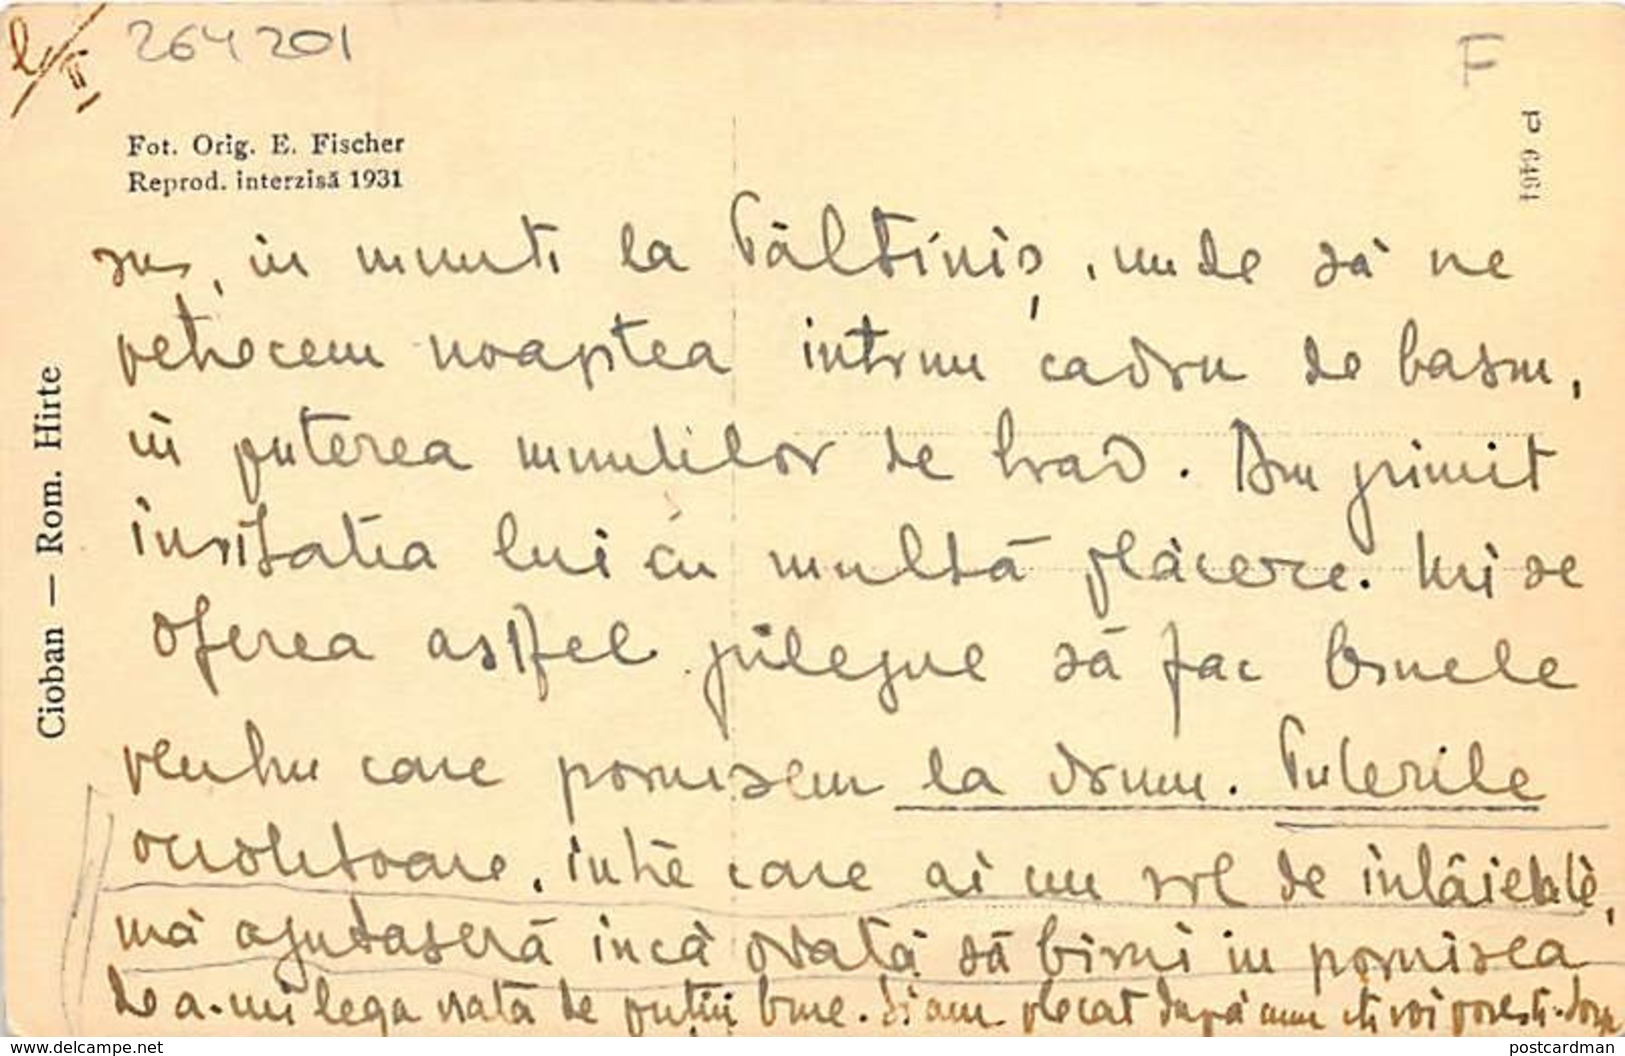 2/II 264201
F
Fot. Orig. E. Fischer
Reprod. interzisă 1931
P 6461
Cioban — Rom. Hirte
sus, in munti la Păltiniș, unde să ne
petrecem noaptea intrun cadru de basm,
in puterea muntilor de brad. Am primit
invitatia lui cu multă plăcere. Mi se
oferea astfel prilejul să fac lucrele
pentru care pornisem la drum. Puterile
ocrotitoare, intre care ai un rol de intâietate,
mă ajutaseră incă odată să birui in pornirea
de a-mi lega viata de putin bine. Si am plecat după cum iti voi povesti.
www.delcampe.net
postcardman